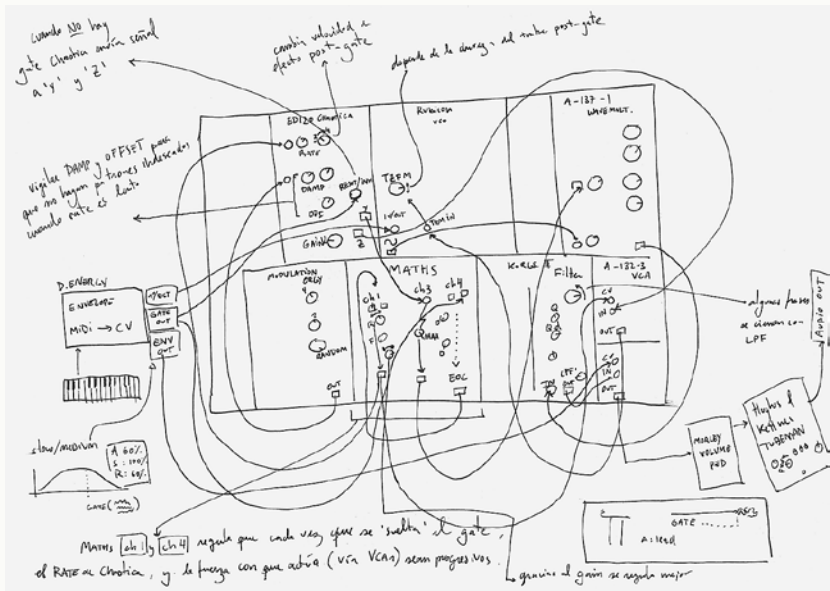 cuando NO hay
gate Chaotica envía señal
a 'Y' y 'Z'
cambia velocidad de
efecto post-gate
depende de la
post-gate
vigilar DAMP y OFFSET para
que no hayan patrones indeseados
cuando rate es lento
Chaotica
RATE
DAMP
OFF
GAIN
Y
Z
Rubicon
VCO
TZFM
1V/OCT
A-137-1
WAVE MULT.
D.ENERGY
ENVELOPE
MIDI → CV
1V/OCT
GATE
OUT
ENV
OUT
MODULATION
ORGY
RANDOM
OUT
MATHS
ch1
ch3
ch4
R
F
EOC
Filter
Q
LPF
IN
A-132-3
VCA
CV
IN
OUT
CV
IN
OUT
algunas frases
se cierran con
LPF
AUDIO OUT
Hughes &
Kettner
TUBEMAN
MORLEY
VOLUME
slow/medium
A 60%
S: 100%
R: 60%
GATE
GATE ......
MATHS ch 1 y ch 4 regula que cada vez que se 'suelta' el gate,
el RATE de Chaotica, y la fuerza con que actúa (vía VCAs) sean progresivos.
gracias al gain se regula mejor